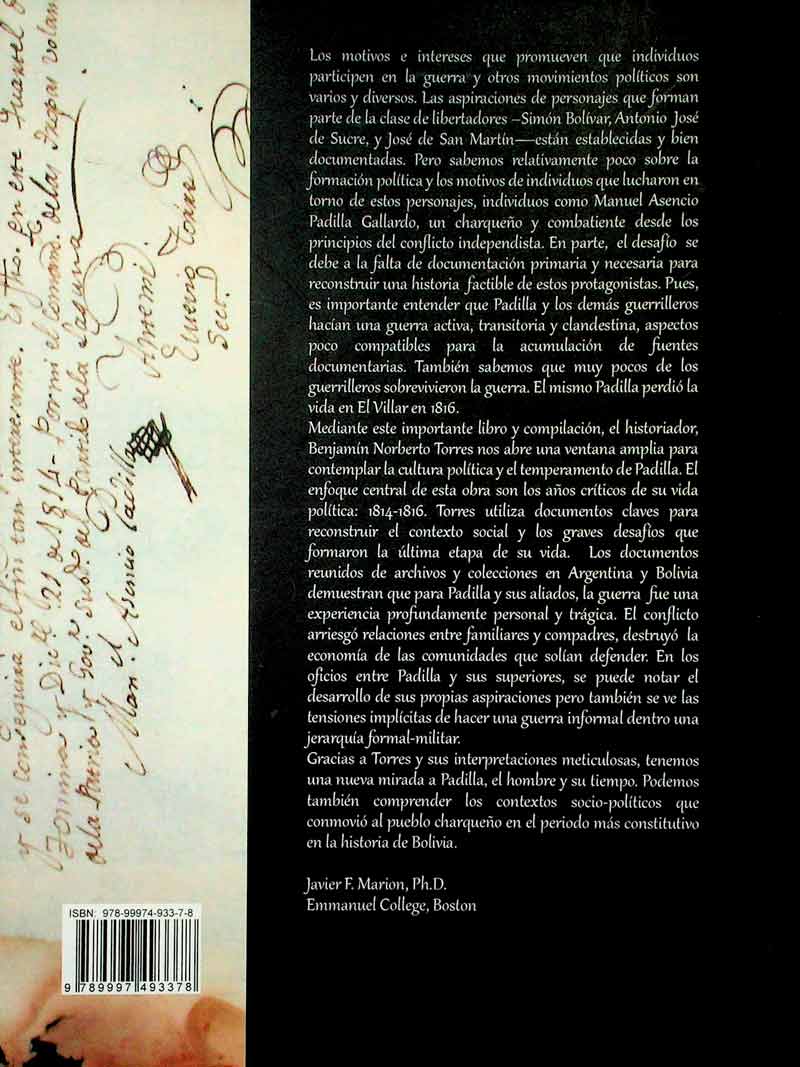 Los motivos e intereses que promueven que individuos
participen en la guerra y otros movimientos políticos son
varios y diversos. Las aspiraciones de personajes que forman
parte de la clase de libertadores –Simón Bolívar, Antonio José
de Sucre, y José de San Martín—están establecidas y bien
documentadas. Pero sabemos relativamente poco sobre la
formación política y los motivos de individuos que lucharon en
torno de estos personajes, individuos como Manuel Asencio
Padilla Gallardo, un charqueño y combatiente desde los
principios del conflicto independista. En parte, el desafío se
debe a la falta de documentación primaria y necesaria para
reconstruir una historia factible de estos protagonistas. Pues,
es importante entender que Padilla y los demás guerrilleros
hacían una guerra activa, transitoria y clandestina, aspectos
poco compatibles para la acumulación de fuentes
documentarias. También sabemos que muy pocos de los
guerrilleros sobrevivieron la guerra. El mismo Padilla perdió la
vida en El Villar en 1816.
Mediante este importante libro y compilación, el historiador,
Benjamín Norberto Torres nos abre una ventana amplia para
contemplar la cultura política y el temperamento de Padilla. El
enfoque central de esta obra son los años críticos de su vida
política: 1814-1816. Torres utiliza documentos claves para
reconstruir el contexto social y los graves desafíos que
formaron la última etapa de su vida. Los documentos
reunidos de archivos y colecciones en Argentina y Bolivia
demuestran que para Padilla y sus aliados, la guerra fue una
experiencia profundamente personal y trágica. El conflicto
arriesgó relaciones entre familiares y compadres, destruyó la
economía de las comunidades que solían defender. En los
oficios entre Padilla y sus superiores, se puede notar el
desarrollo de sus propias aspiraciones pero también se ve las
tensiones implícitas de hacer una guerra informal dentro una
jerarquía formal-militar.
Gracias a Torres y sus interpretaciones meticulosas, tenemos
una nueva mirada a Padilla, el hombre y su tiempo. Podemos
también comprender los contextos socio-políticos que
conmovió al pueblo charqueño en el periodo más constitutivo
en la historia de Bolivia.
Javier F. Marion, Ph.D.
Emmanuel College, Boston
y se conseguira el fin tan interesante.
1814
dela Patria y
Man.l Asencio Padilla
ISBN: 978-99974-933-7-8
9 789997 493378